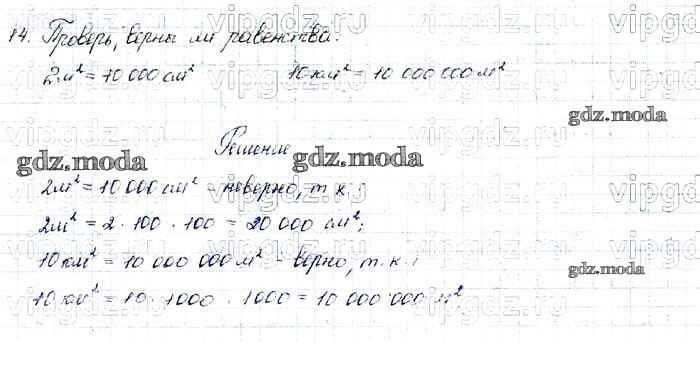 vipgdz.ru vipgdz.ru vipgdz.ru vipgdz
14. Проверь, верны ли равенства:
2м² = 10 000 см² 10 км² = 10 000 000 м²
gdz.moda
Решение
gdz.moda gdz.moda
2м² = 10 000 см² - неверно, т.к.:
2м² = 2 · 100 · 100 = 20 000 см²;
10 км² = 10 000 000 м² - верно, т.к.:
gdz.moda
10 км² = 10 · 1000 · 1000 = 10 000 000 м²